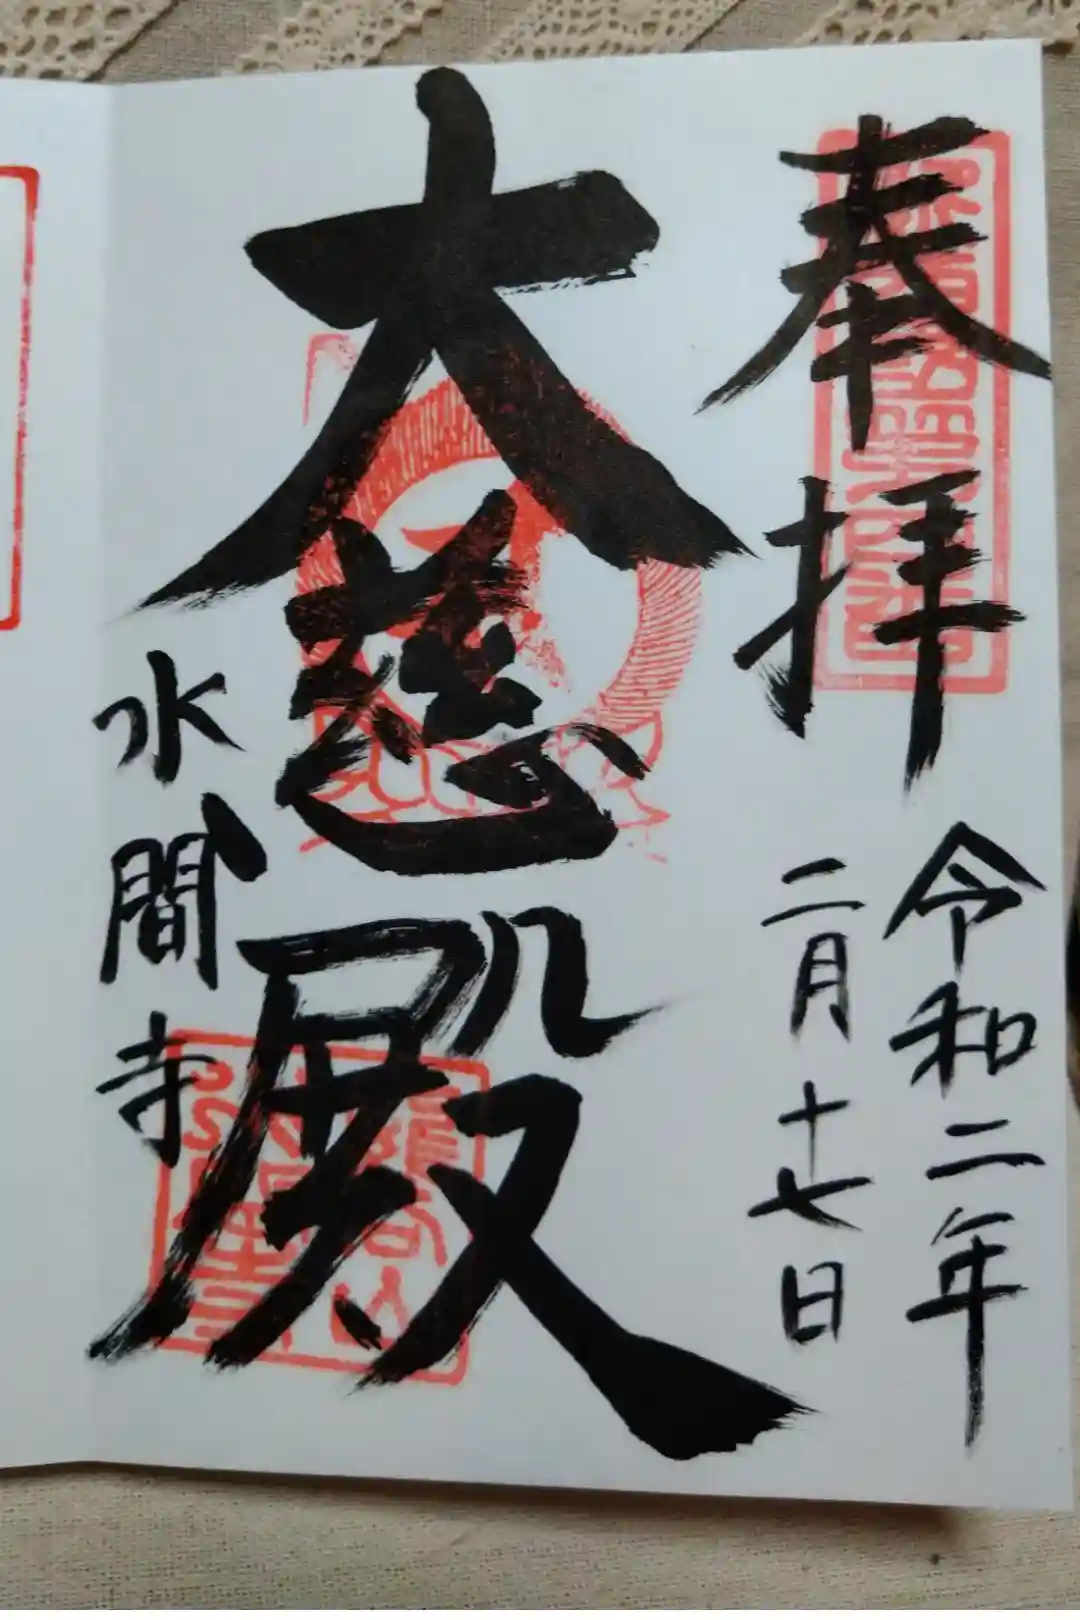 奉拝
令和二年
二月十七日
大慈殿
水間寺